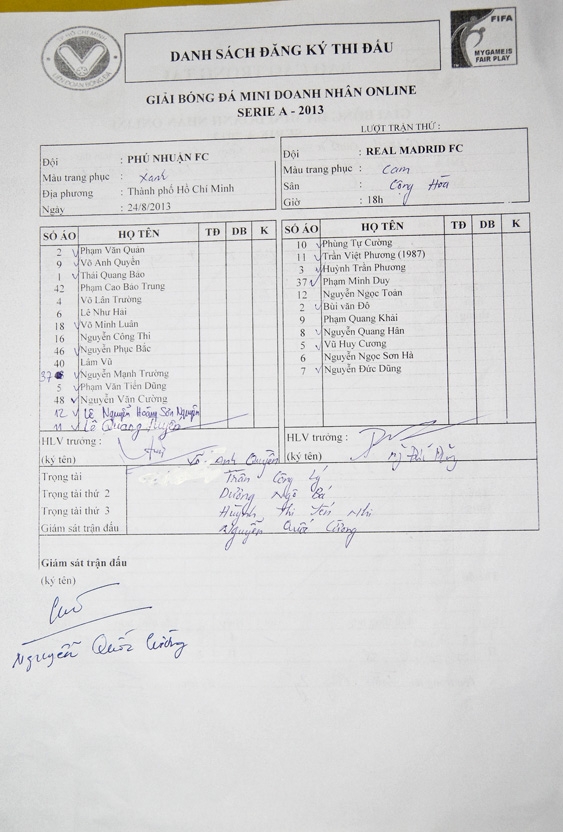 TP HỒ CHÍ MINH
LIÊN ĐOÀN BÓNG ĐÁ
DANH SÁCH ĐĂNG KÝ THI ĐẤU
FIFA
MY GAME IS
FAIR PLAY
GIẢI BÓNG ĐÁ MINI DOANH NHÂN ONLINE
SERIE A - 2013
LƯỢT TRẬN THỨ :
Đội : PHÚ NHUẬN FC
Màu trang phục : Xanh
Địa phương : Thành phố Hồ Chí Minh
Ngày : 24/8/2013
Đội : REAL MADRID FC
Màu trang phục : Cam
Sân : Cộng Hòa
Giờ : 18h
SỐ ÁO HỌ TÊN TĐ DB K
2 Phạm Văn Quản
9 Võ Anh Quyền
1 Thái Quang Bảo
42 Phạm Cao Bảo Trung
4 Võ Lân Trường
6 Lê Như Hải
18 Võ Minh Luân
16 Nguyễn Công Thi
46 Nguyễn Phục Bắc
40 Lâm Vũ
37 Nguyễn Mạnh Trường
5 Phạm Văn Tiến Dũng
48 Nguyễn Văn Cường
12 Lê Nguyễn Hoàng Sơn Nguyên
11 Lê Quang
SỐ ÁO HỌ TÊN TĐ DB K
10 Phùng Tự Cường
11 Trần Việt Phương (1987)
3 Huỳnh Trần Phương
37 Phạm Minh Duy
12 Nguyễn Ngọc Toản
2 Bùi văn Đô
9 Phạm Quang Khải
8 Nguyễn Quang Hân
5 Vũ Huy Cương
6 Nguyễn Ngọc Sơn Hà
7 Nguyễn Đức Dũng
HLV trưởng :
(ký tên) Võ Anh Quyền
HLV trưởng :
(ký tên)
Trọng tài Trần Công Lý
Trọng tài thứ 2 Dương Ngô Bá
Trọng tài thứ 3 Huỳnh Thi Yến Nhi
Giám sát trận đấu Nguyễn Quốc Cường
Giám sát trận đấu
(ký tên)
Nguyễn Quốc Cường